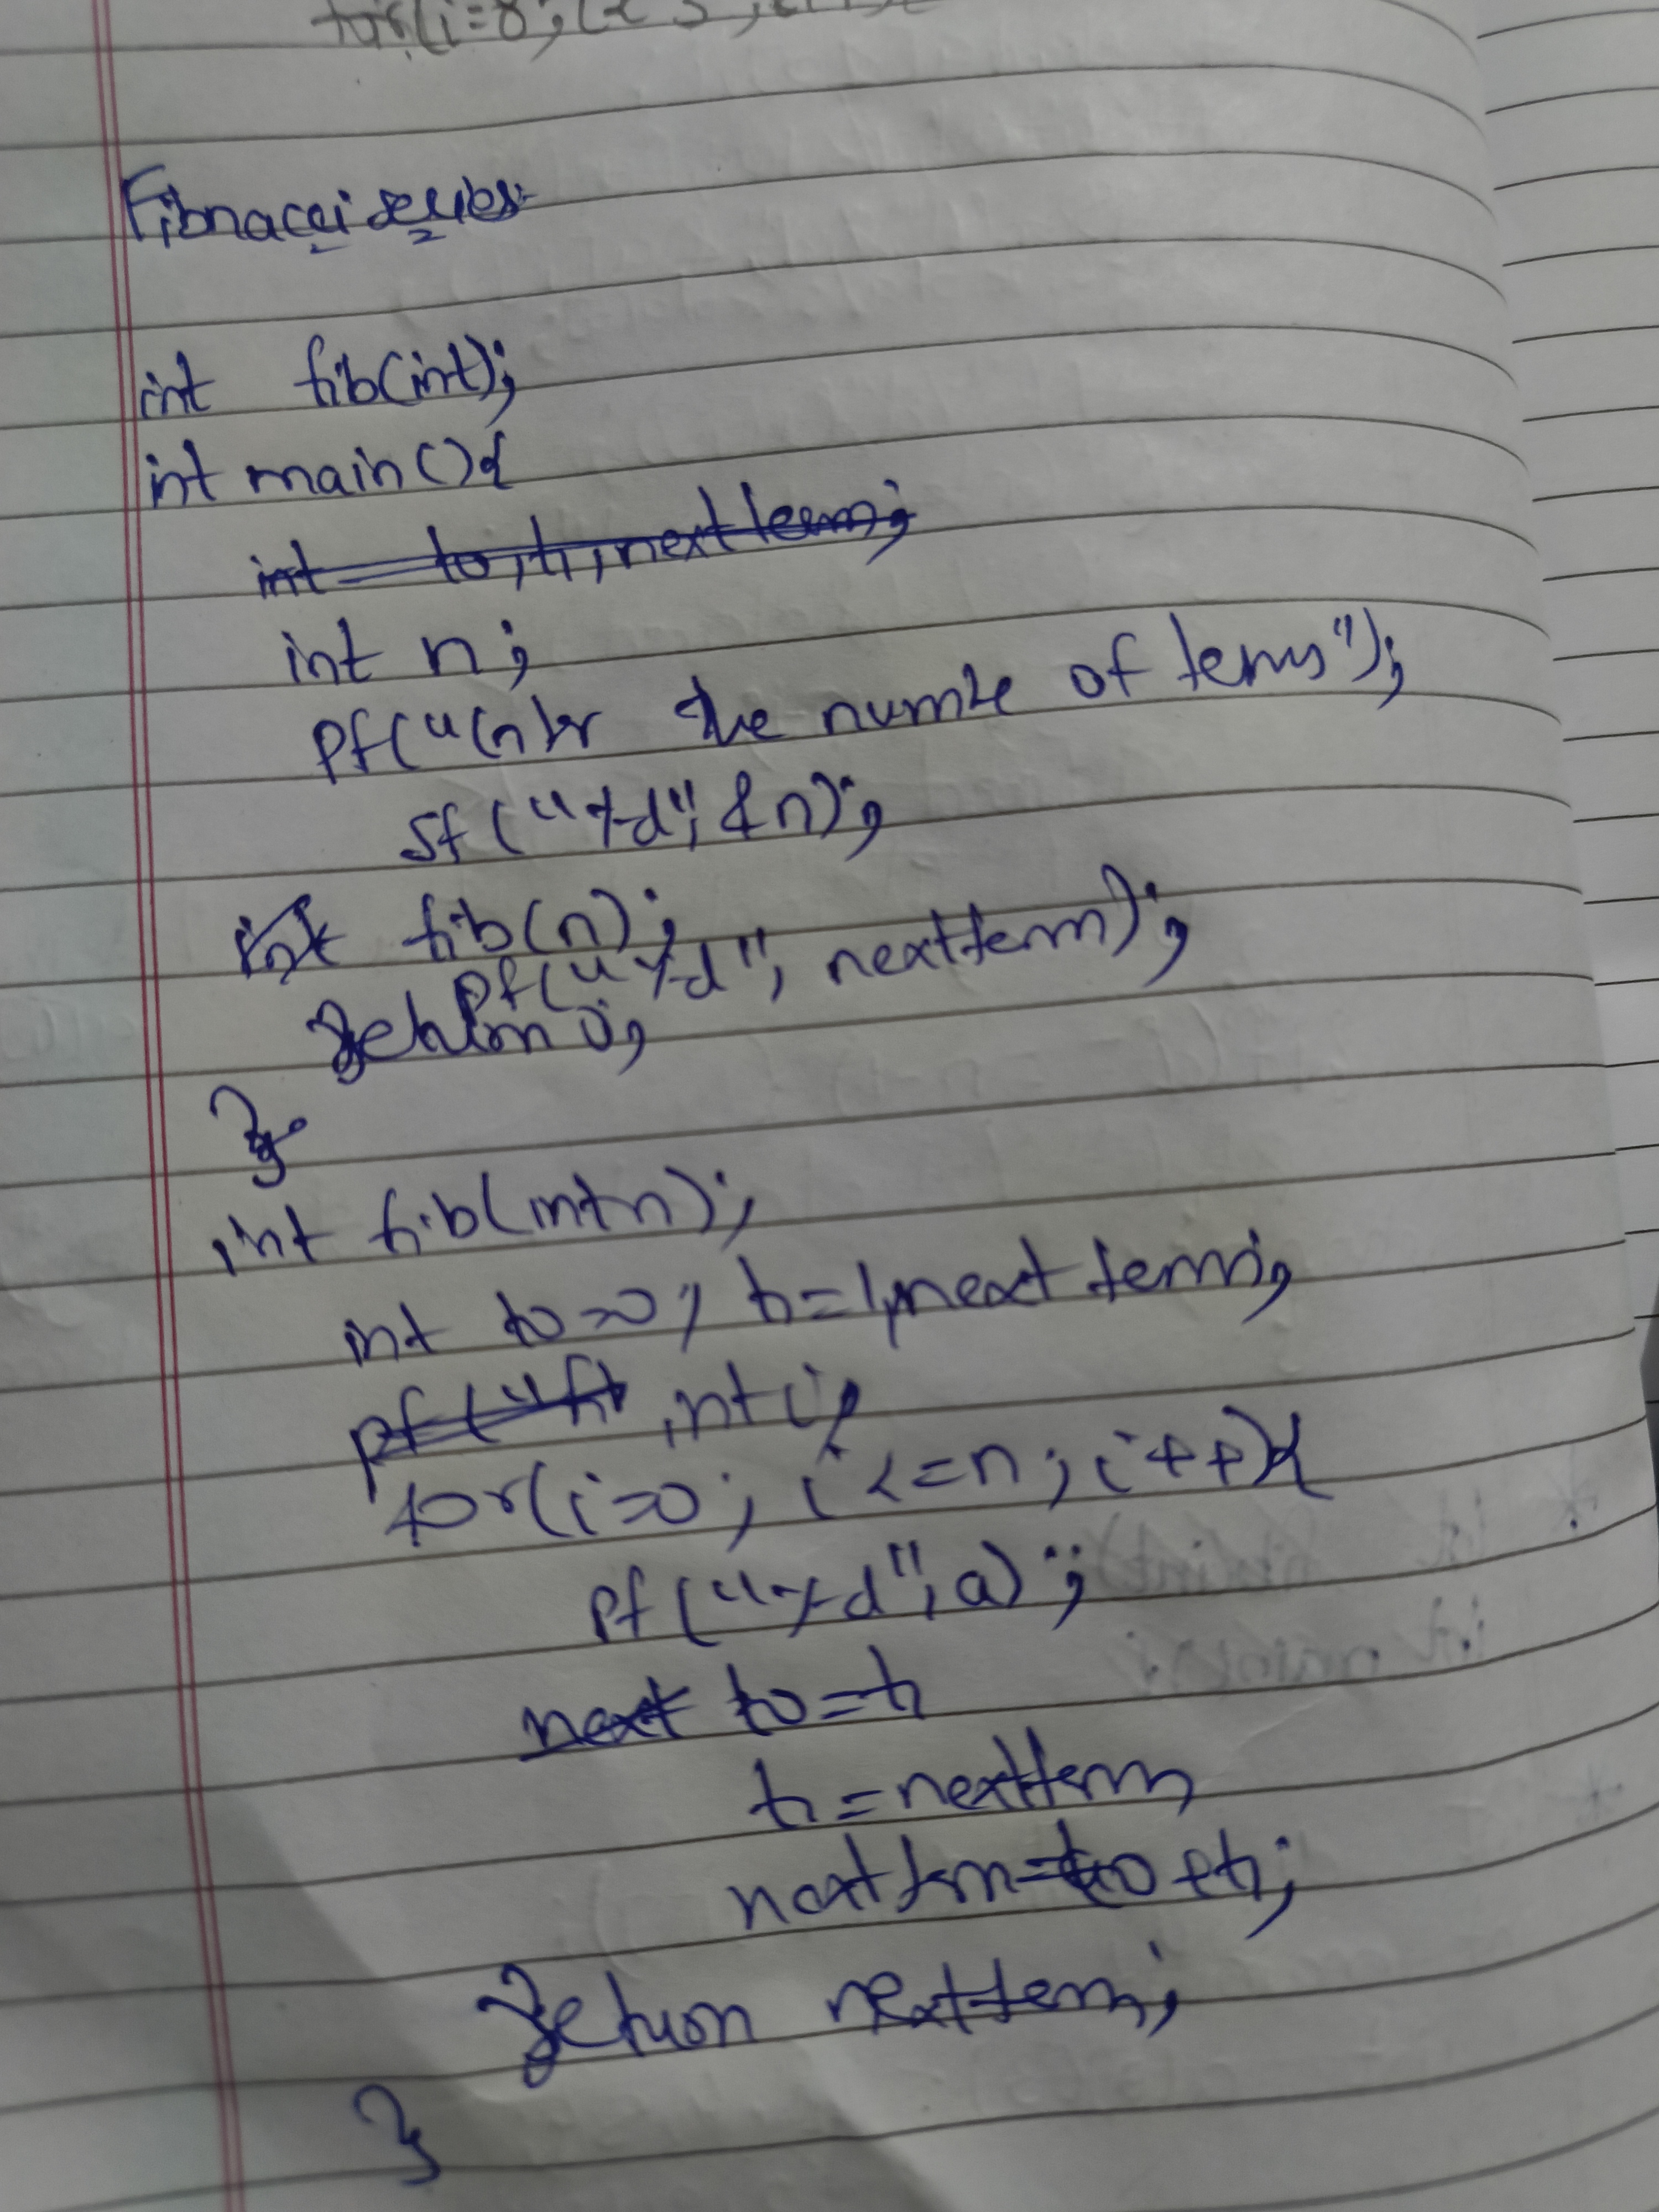 for(i=0;
Fibnacci series:-
int fib(int);
int main(){
int to, t1, next term;
int n;
Pf("Enter the numbe of terms");
sf("%d", &n);
int fib(n);
Pf("%d", nextterm);
return 0;
}
int fib(int n);
int to=0, t1=1, next term;
pf("fi int i;
for(i=0; i<=n; i++){
Pf("%d", a);
next to=t1
t1=nextterm
nextterm=to+t1;
return nextterm;
}